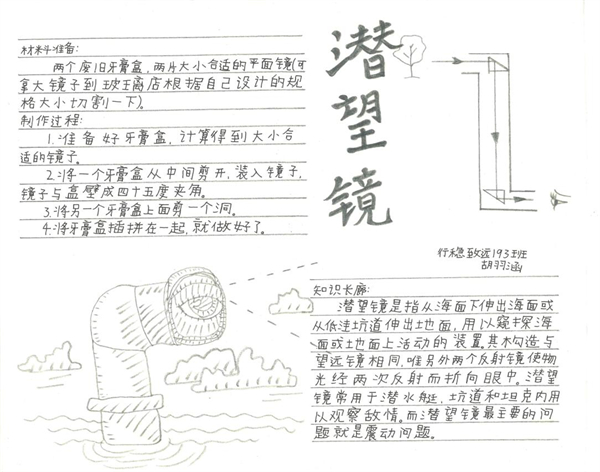 材料准备:
两个废旧牙膏盒,两片大小合适的平面镜(可
拿大镜子到玻璃店根据自己设计的规
格大小切割一下)。
制作过程:
1.准备好牙膏盒,计算得到大小合
适的镜子。
2.将一个牙膏盒从中间剪开,装入镜子,
镜子与盒壁成四十五度夹角。
3.将另一个牙膏盒上面剪一个洞。
4.将牙膏盒插拼在一起,就做好了。
潜望镜
行稳致远193班
胡羽涵
知识长廊:
潜望镜是指从海面下伸出海面或
从低洼坑道伸出地面,用以窥探海
面或地面上活动的装置。其构造与
望远镜相同,唯另外两个反射镜使物
光经两次反射而折向眼中。潜望
镜常用于潜水艇,坑道和坦克内用
以观察敌情。而潜望镜最主要的问
题就是震动问题。